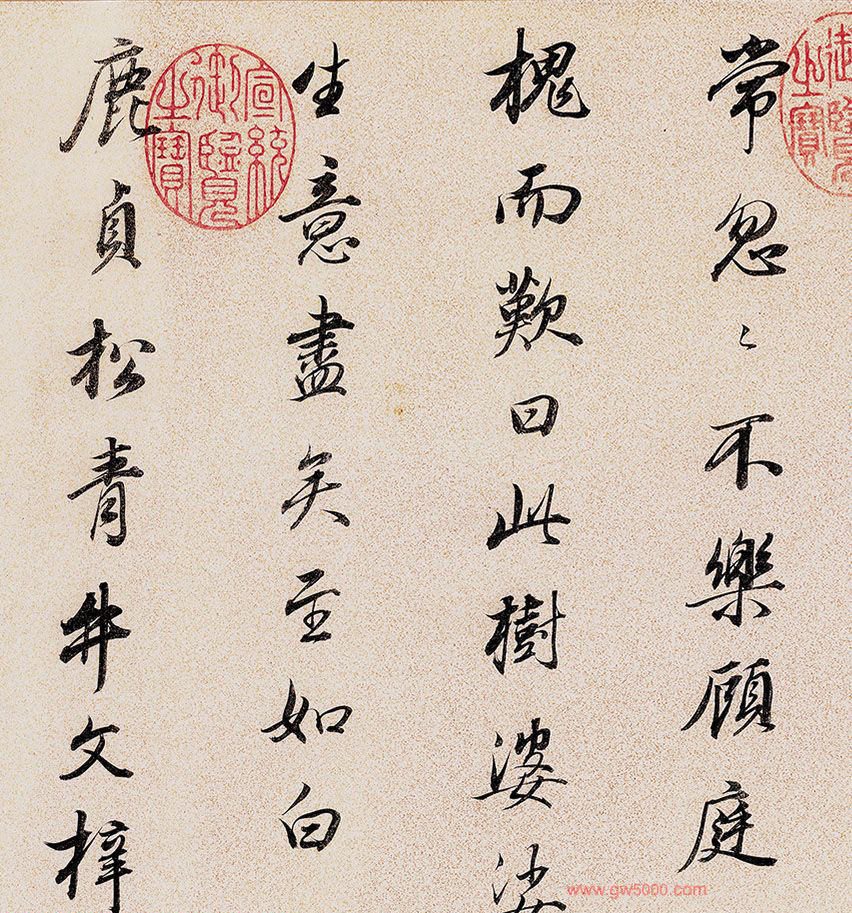 御覽之寶
常忽〻不樂顧庭
槐而歎曰此樹婆娑
生意盡矣至如白
宣統御覽之寶
鹿貞松青牛文梓
www.gw5000.com